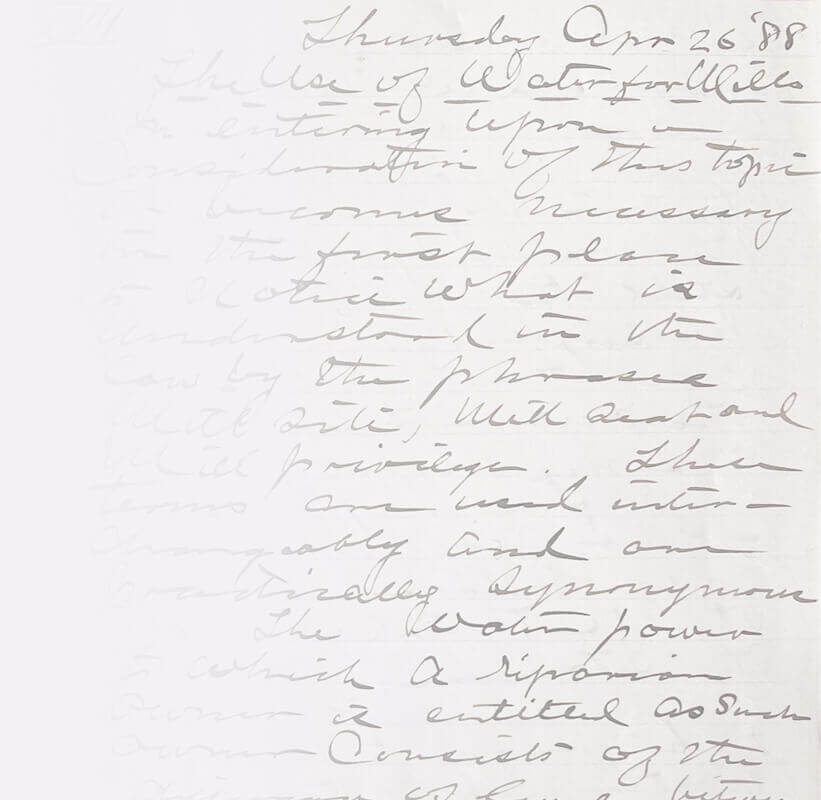 Thursday Apr 26 '88
The Use of Water for Mills
In entering upon a
Consideration of this topic
it becomes necessary
in the first place
to Notice what is
understood in the
Law by the phrases
Mill Site, Mill Seat and
Mill privilege. These
terms are used inter-
changeably and are
practically synonymous
The Water power
to which a riparian
owner is entitled as such
owner Consists of the
difference of level between